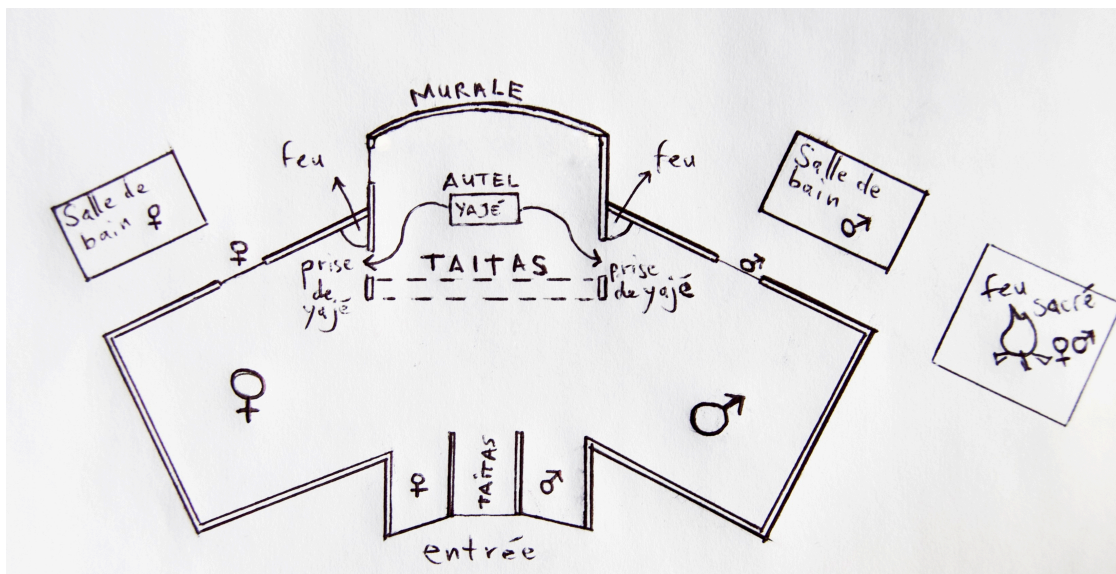 MURALE
feu
feu
AUTEL
YAJÉ
Salle de
bain ♀
Salle de
bain ♂
♀
♂
TAITAS
prise
de
yajé
prise
de yajé
feu
sacré
♀♂
♀
♂
♀
TAITAS
♂
entrée